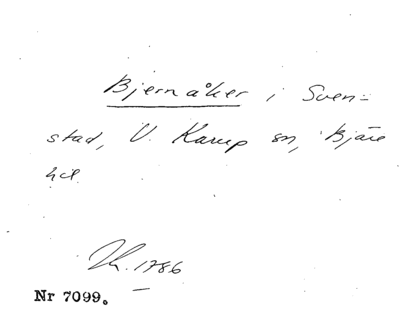 Bjernåker i Sven-
stad, V. Karup sn, Bjäre
hd.
1786
Nr 7099.